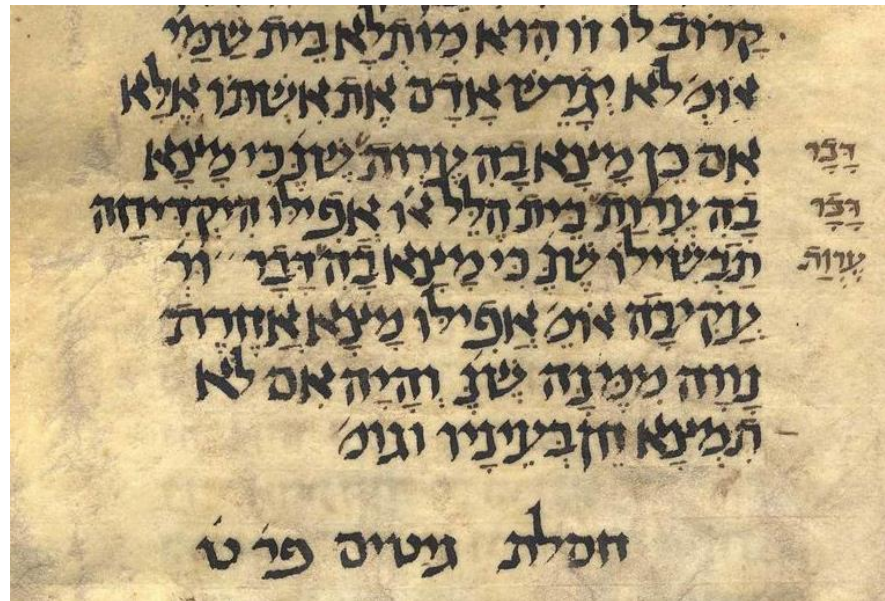 קרוב לו זו הוא מותלא בית שמי
אומ' לא יגרש אדם את אשתו אלא
אם כן מצא בה ערות שנ' כי מצא
בה ערות בית הלל או' אפילו היקדיחה
תבשילו שנ' כי מצא בה דבר ור'
עקיבה אומ' אפילו מצא אחרת
נווה ממנה שנ' והיה אם לא
תמצא חן בעיניו וגומ'
חסלת גיטים פר' ט'
דבר
דבר
ערות